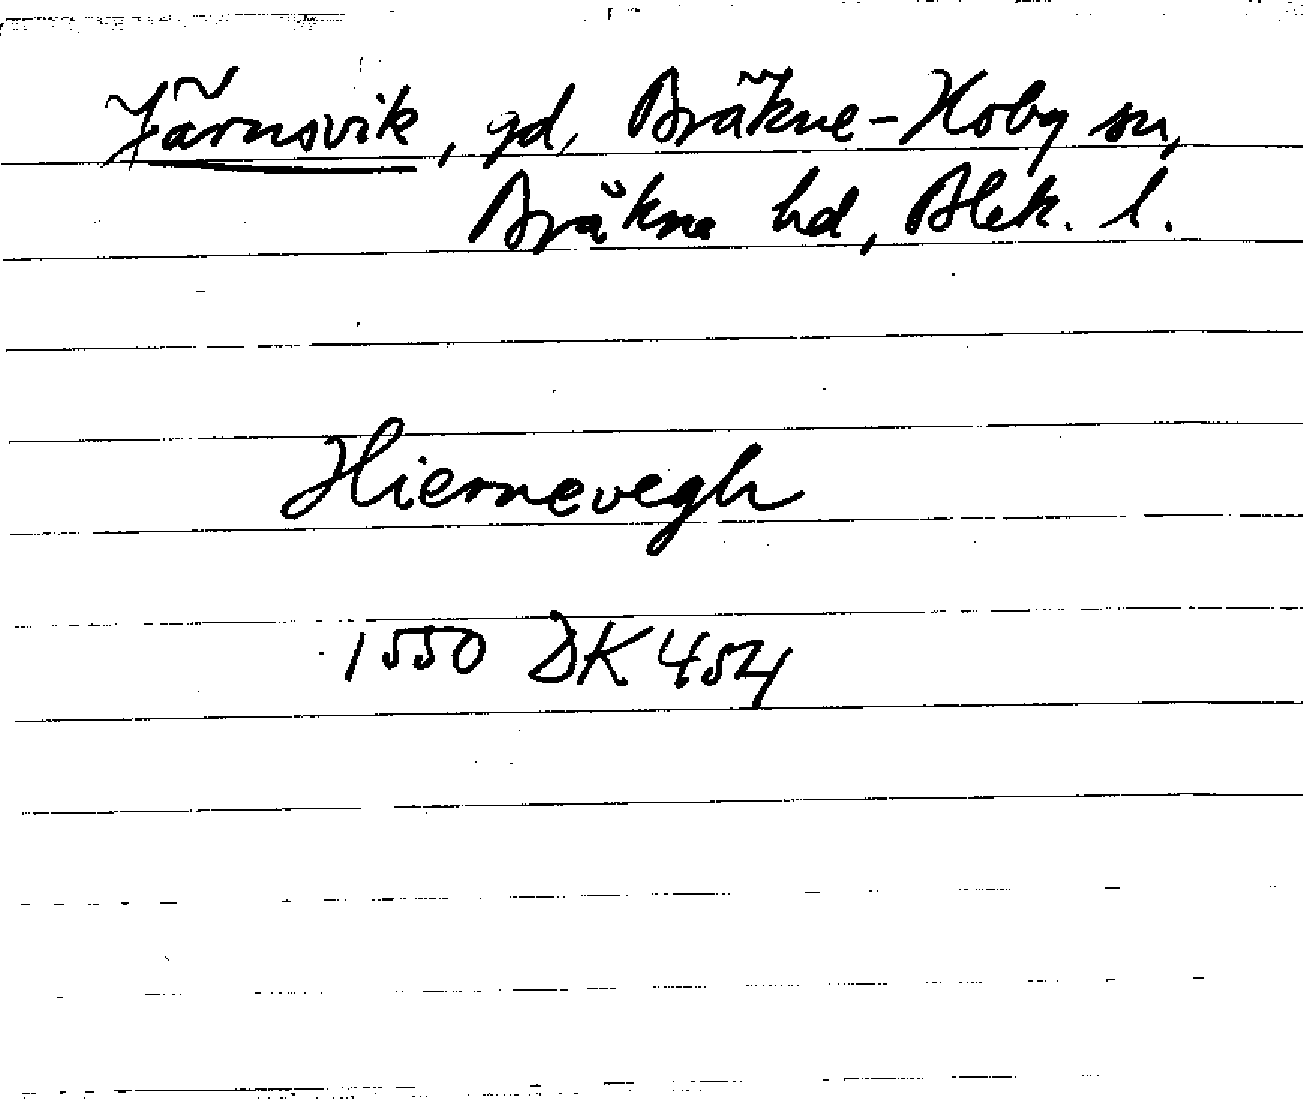 Järnsvik, gd, Bräkne-Hoby sn,
Bräkne hd, Blek. l.
Hiernevegh
1550 DK 454